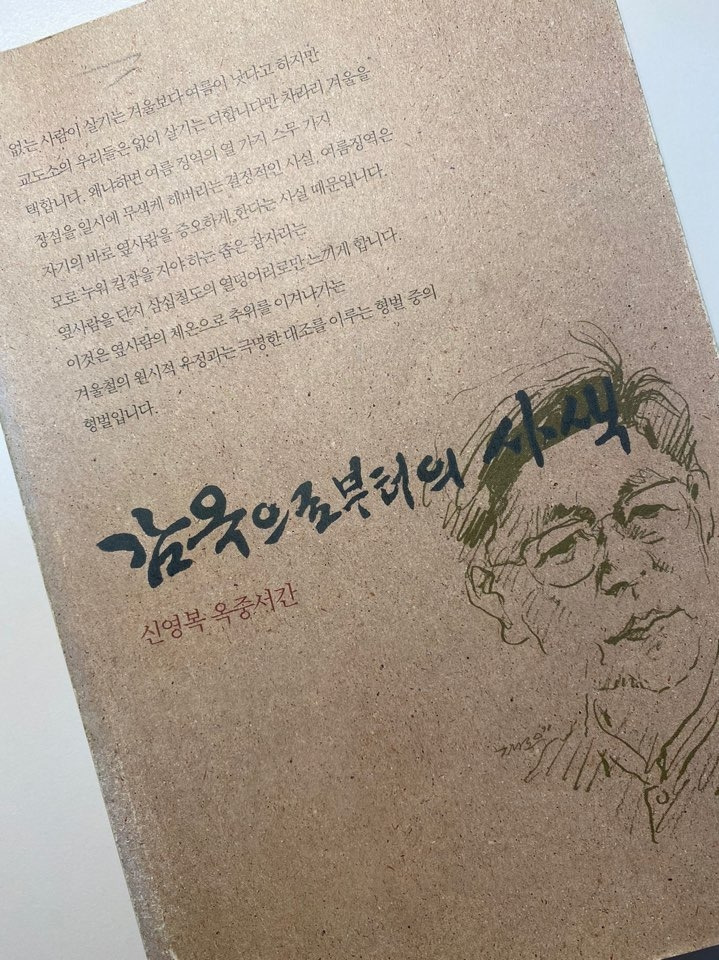 없는 사람이 살기는 겨울보다 여름이 낫다고 하지만
교도소의 우리들은 없이 살기는 더합니다만 차라리 겨울을
택합니다. 왜냐하면 여름 징역의 열 가지 스무 가지
장점을 일시에 무색케 해버리는 결정적인 사실, 여름징역은
자기의 바로 옆사람을 증오하게 한다는 사실 때문입니다.
모로 누워 칼잠을 자야 하는 좁은 잠자리는
옆사람을 단지 삼십칠도의 열덩어리로만 느끼게 합니다.
이것은 옆사람의 체온으로 추위를 이겨나가는
겨울철의 원시적 우정과는 극명한 대조를 이루는 형벌 중의
형벌입니다.
감옥으로부터의 사색
신영복 옥중서간